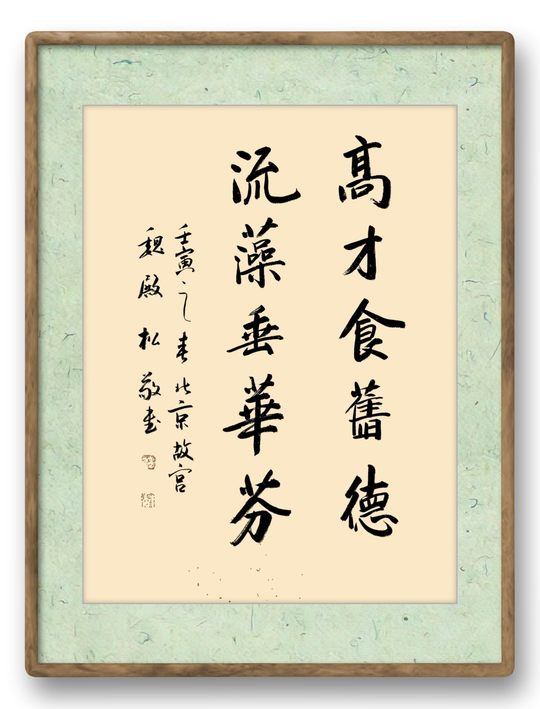 高才食舊德
流藻垂華芬
壬寅之春北京故宮
魏殿松敬書